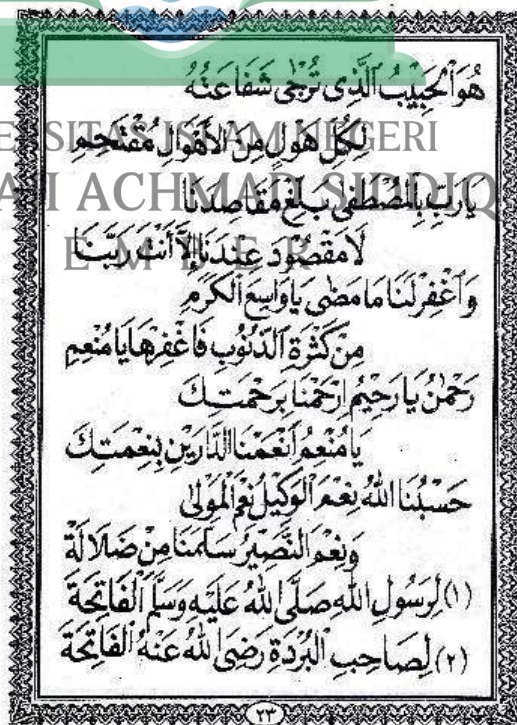 هُوَ الْحَبِيْبُ الَّذِى تُرْجٰى شَفَاعَتُهُ
لِكُلِّ هَوْلٍ مِنَ الْأَهْوَالِ مُقْتَحِمِ
يَارَبِّ بِالْمُصْطَفٰى بَلِّغْ مَقَاصِدَنَا
لَامَقْصُوْدَ عِنْدَنَا إِلَّا أَنْتَ رَبَّنَا
وَاغْفِرْلَنَا مَامَضٰى يَاوَاسِعَ الْكَرَمِ
مِنْ كَثْرَةِ الذُّنُوْبِ فَاغْفِرْهَا يَامُنْعِمِ
رَحْمٰنُ يَارَحِيْمُ اِرْحَمْنَا بِرَحْمَتِكَ
يَامُنْعِمُ أَنْعِمْنَا الدَّارَيْنِ بِنِعْمَتِكَ
حَسْبُنَا اللّٰهُ نِعْمَ الْوَكِيْلُ نِعْمَ الْمَوْلٰى
وَنِعْمَ النَّصِيْرُ سَالِمْنَا مِنْ ضَلَالَةْ
(١) لِرَسُوْلِ اللّٰهِ صَلَّى اللّٰهُ عَلَيْهِ وَسَلَّمَ الْفَاتِحَةْ
(٢) لِصَاحِبِ الْبُرْدَةِ رَضِىَ اللّٰهُ عَنْهُ الْفَاتِحَةْ
٢٣
SITAS ISLAM NEGERI
ACHMAD SIDDIQ
E M B E R